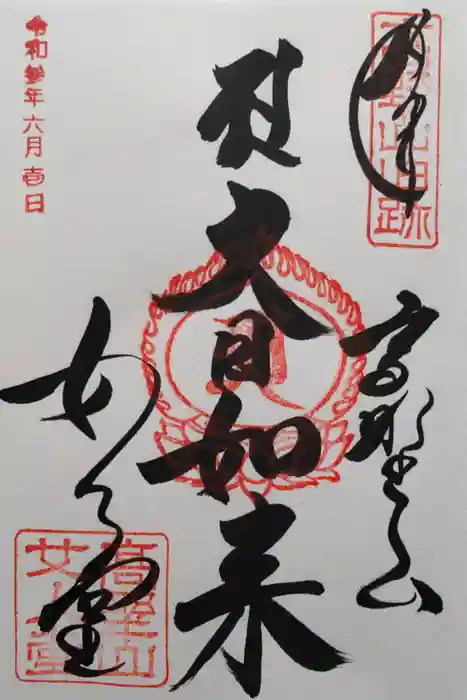 奉拝
高野山
大日如来
女人堂
高野山
女人堂
令和参年六月壱日